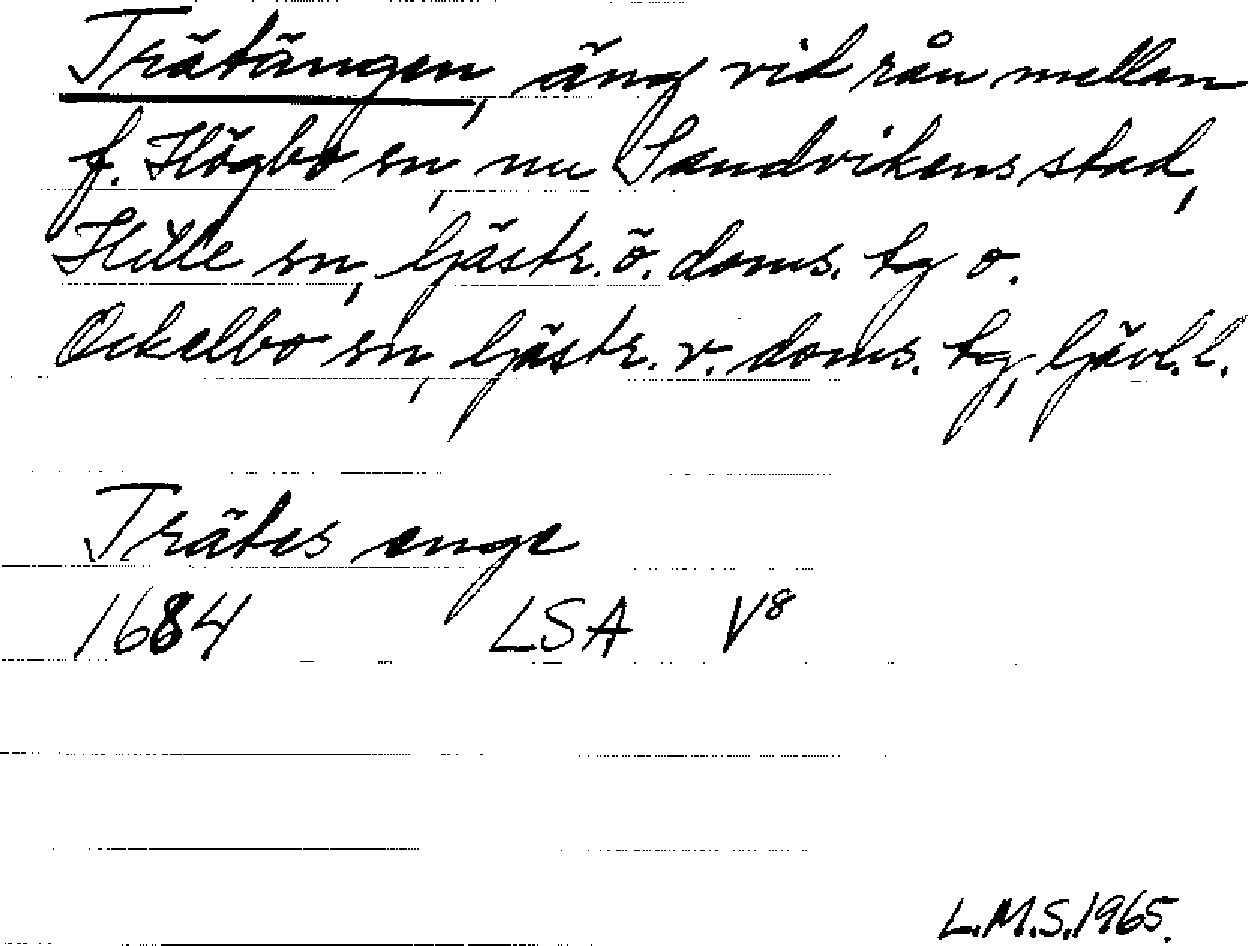 Trätängen, äng vid rån mellan
f. Högbo sn, nu Sandvikens stad,
Hille sn, Gästr. ö. doms. tg o.
Ockelbo sn, Gästr. v. doms. tg, Gävl. l.
Trätes enge
1684 LSA V⁸
L.M.S. 1965.